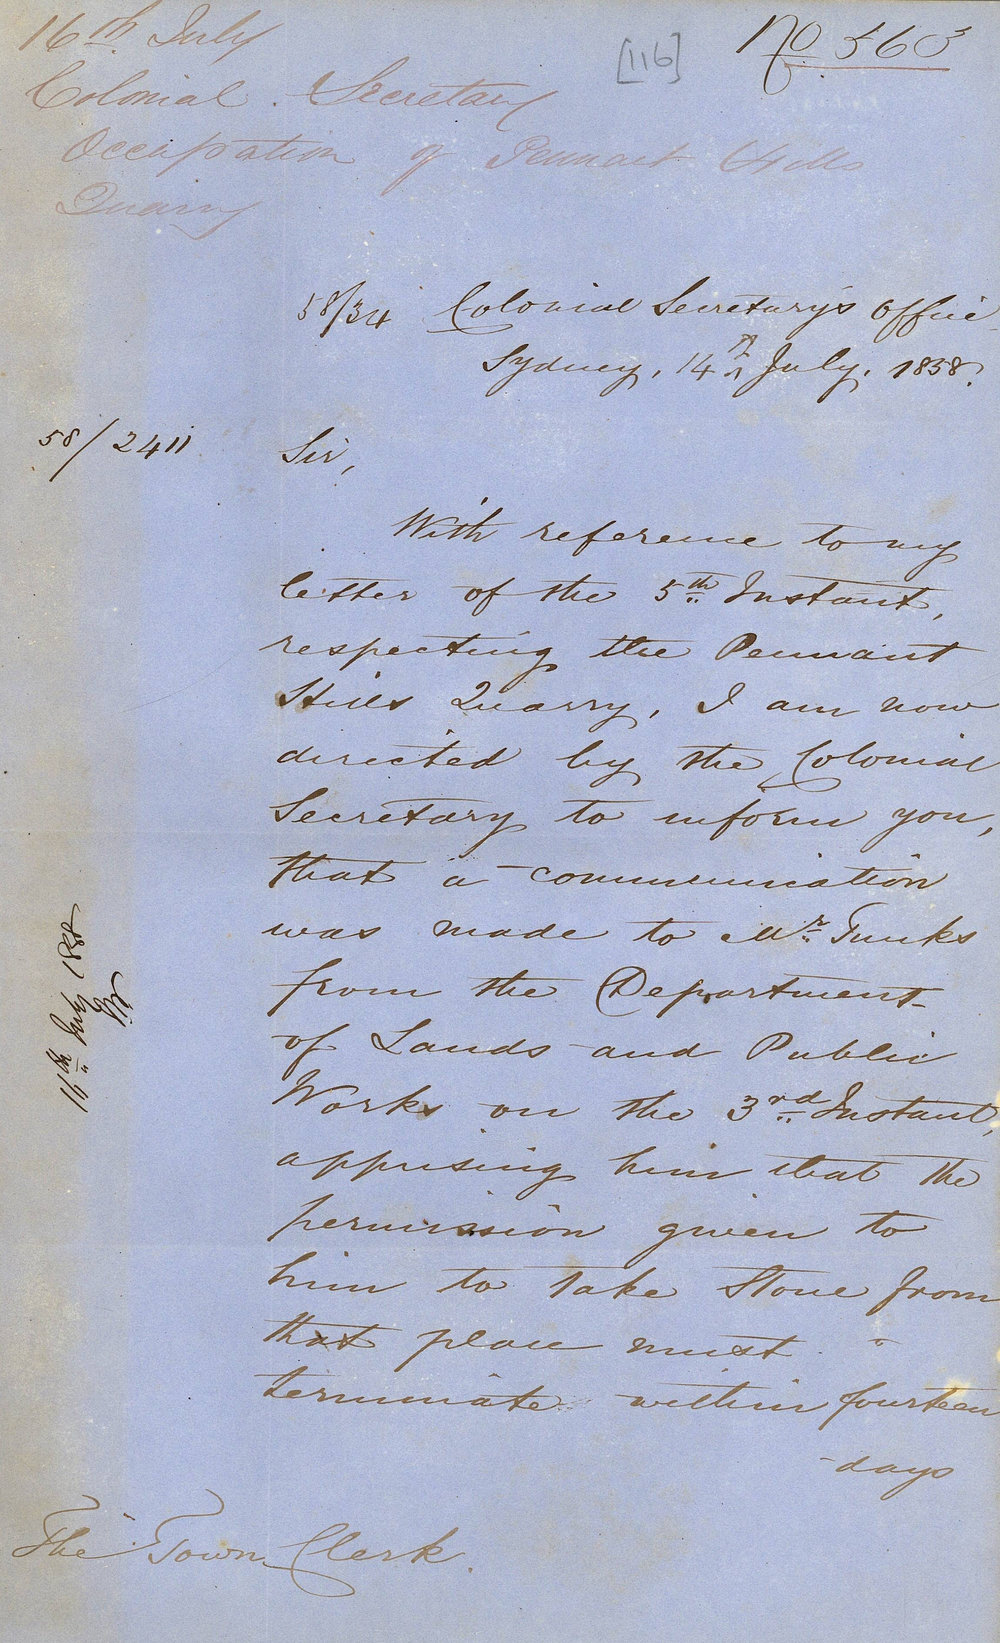 16th July
Colonial Secretary
Occupation of Pennant Hills
Quarry
[116]
No 563
58/34 Colonial Secretary's Office
Sydney, 14th July, 1858.
58/2411
Sir,
With reference to my
letter of the 5th Instant,
respecting the Pennant
Hills Quarry, I am now
directed by the Colonial
Secretary to inform you,
that a communication
was made to Mr. Tunks
from the Department
of Lands and Public
Works on the 3rd Instant,
apprising him that the
permission given to
him to take Stone from
that place must
terminate within fourteen
days
16th July 1858
The Town Clerk.